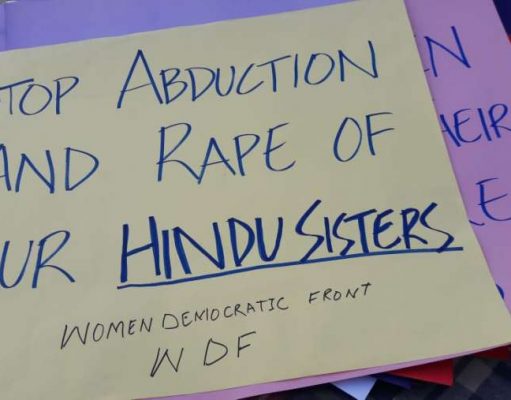 TOP ABDUCTION
AND RAPE OF
UR HINDU SISTERS
WOMEN DEMOCRATIC FRONT
WDF